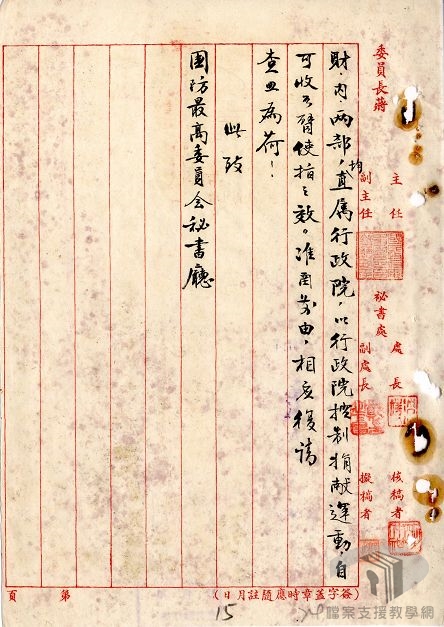 委員長蔣
主任
副主任
秘書處
處長
副處長
核稿者
擬稿者
財、內、兩部，均直屬行政院，以行政院控制捐獻運動，自
可收以臂使指之效。准函前由，相應復請
查照為荷！
此致
國防最高委員會秘書廳
（簽字蓋章時應隨註月日）
第 頁
15
檔案支援教學網